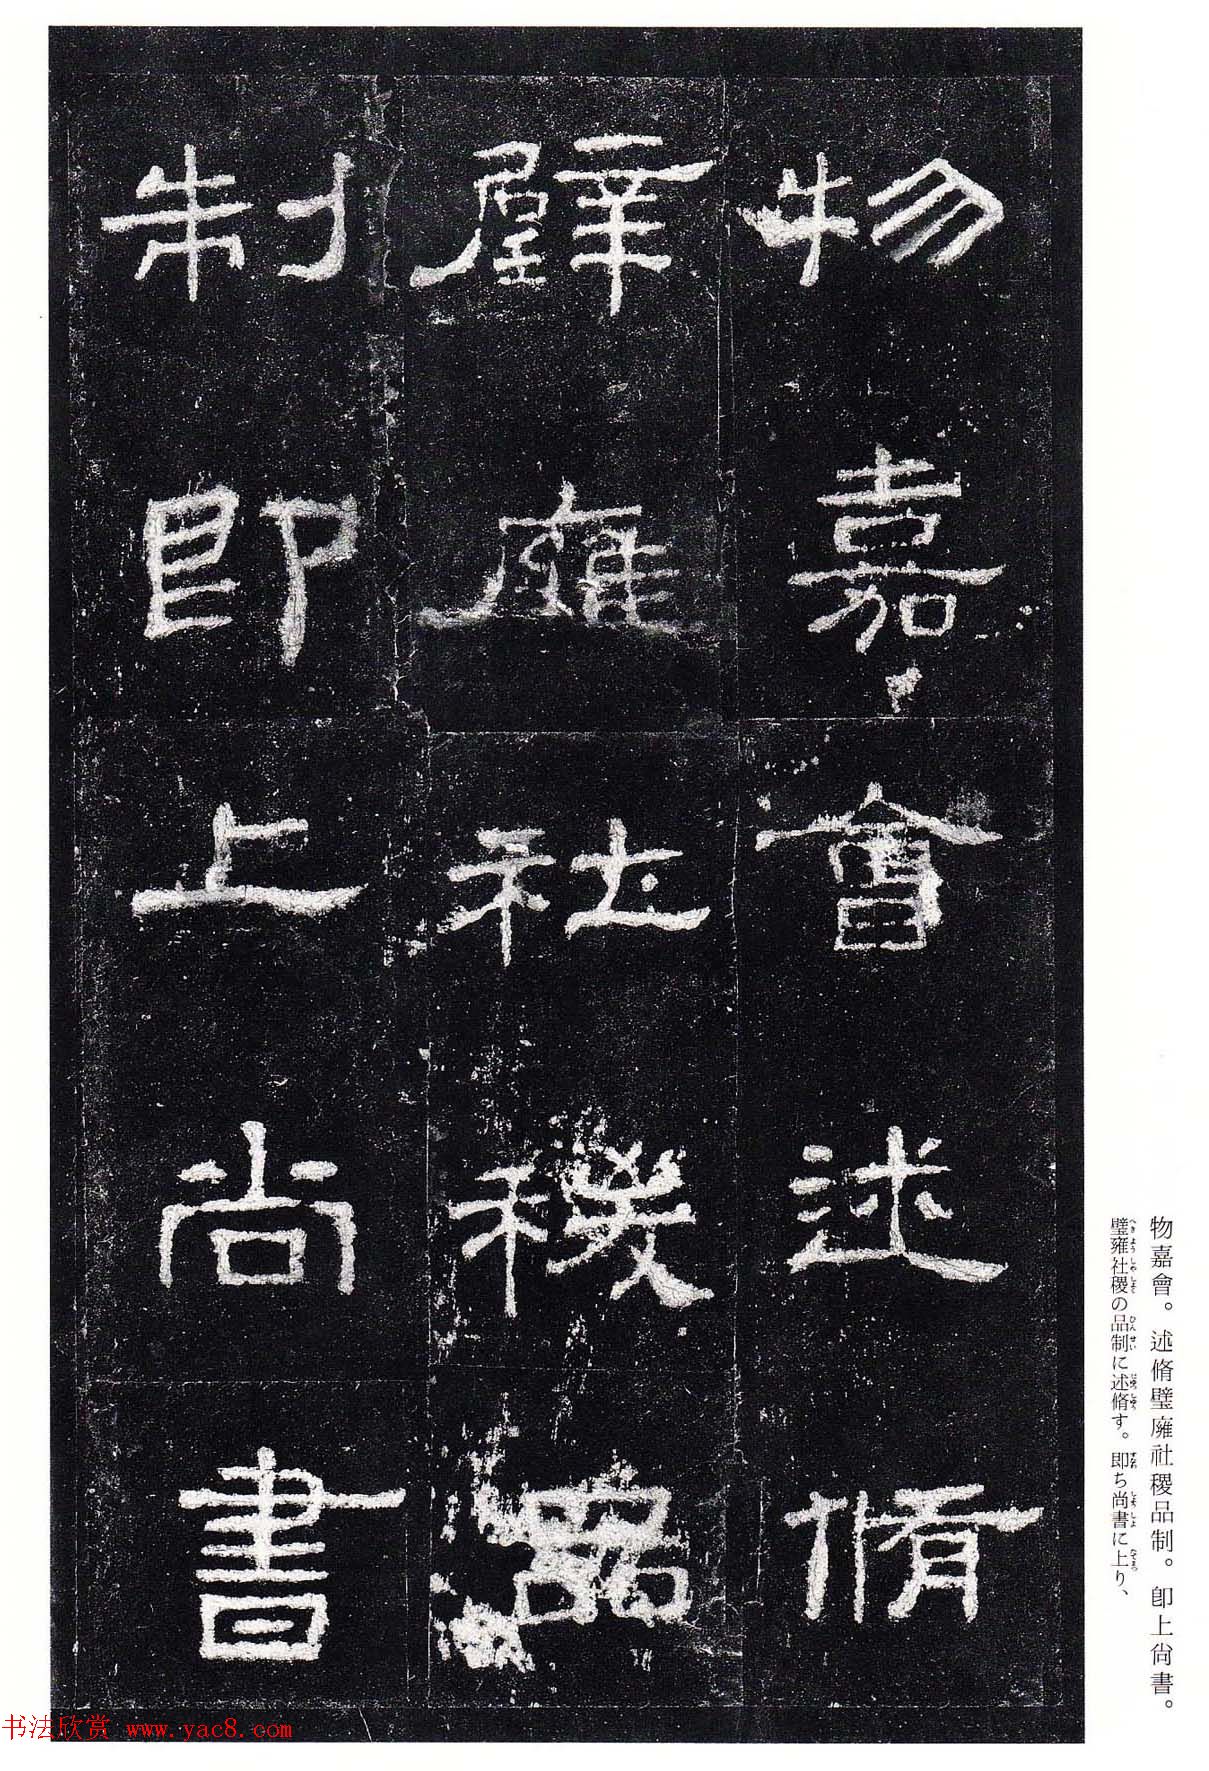 物嘉會述脩
璧廱社稷品
制即上尚書
物嘉會。述脩璧廱社稷品制。卽上尙書。
璧雍社稷の品制に述脩す。即ち尚書に上り、
书法欣赏 www.yac8.com